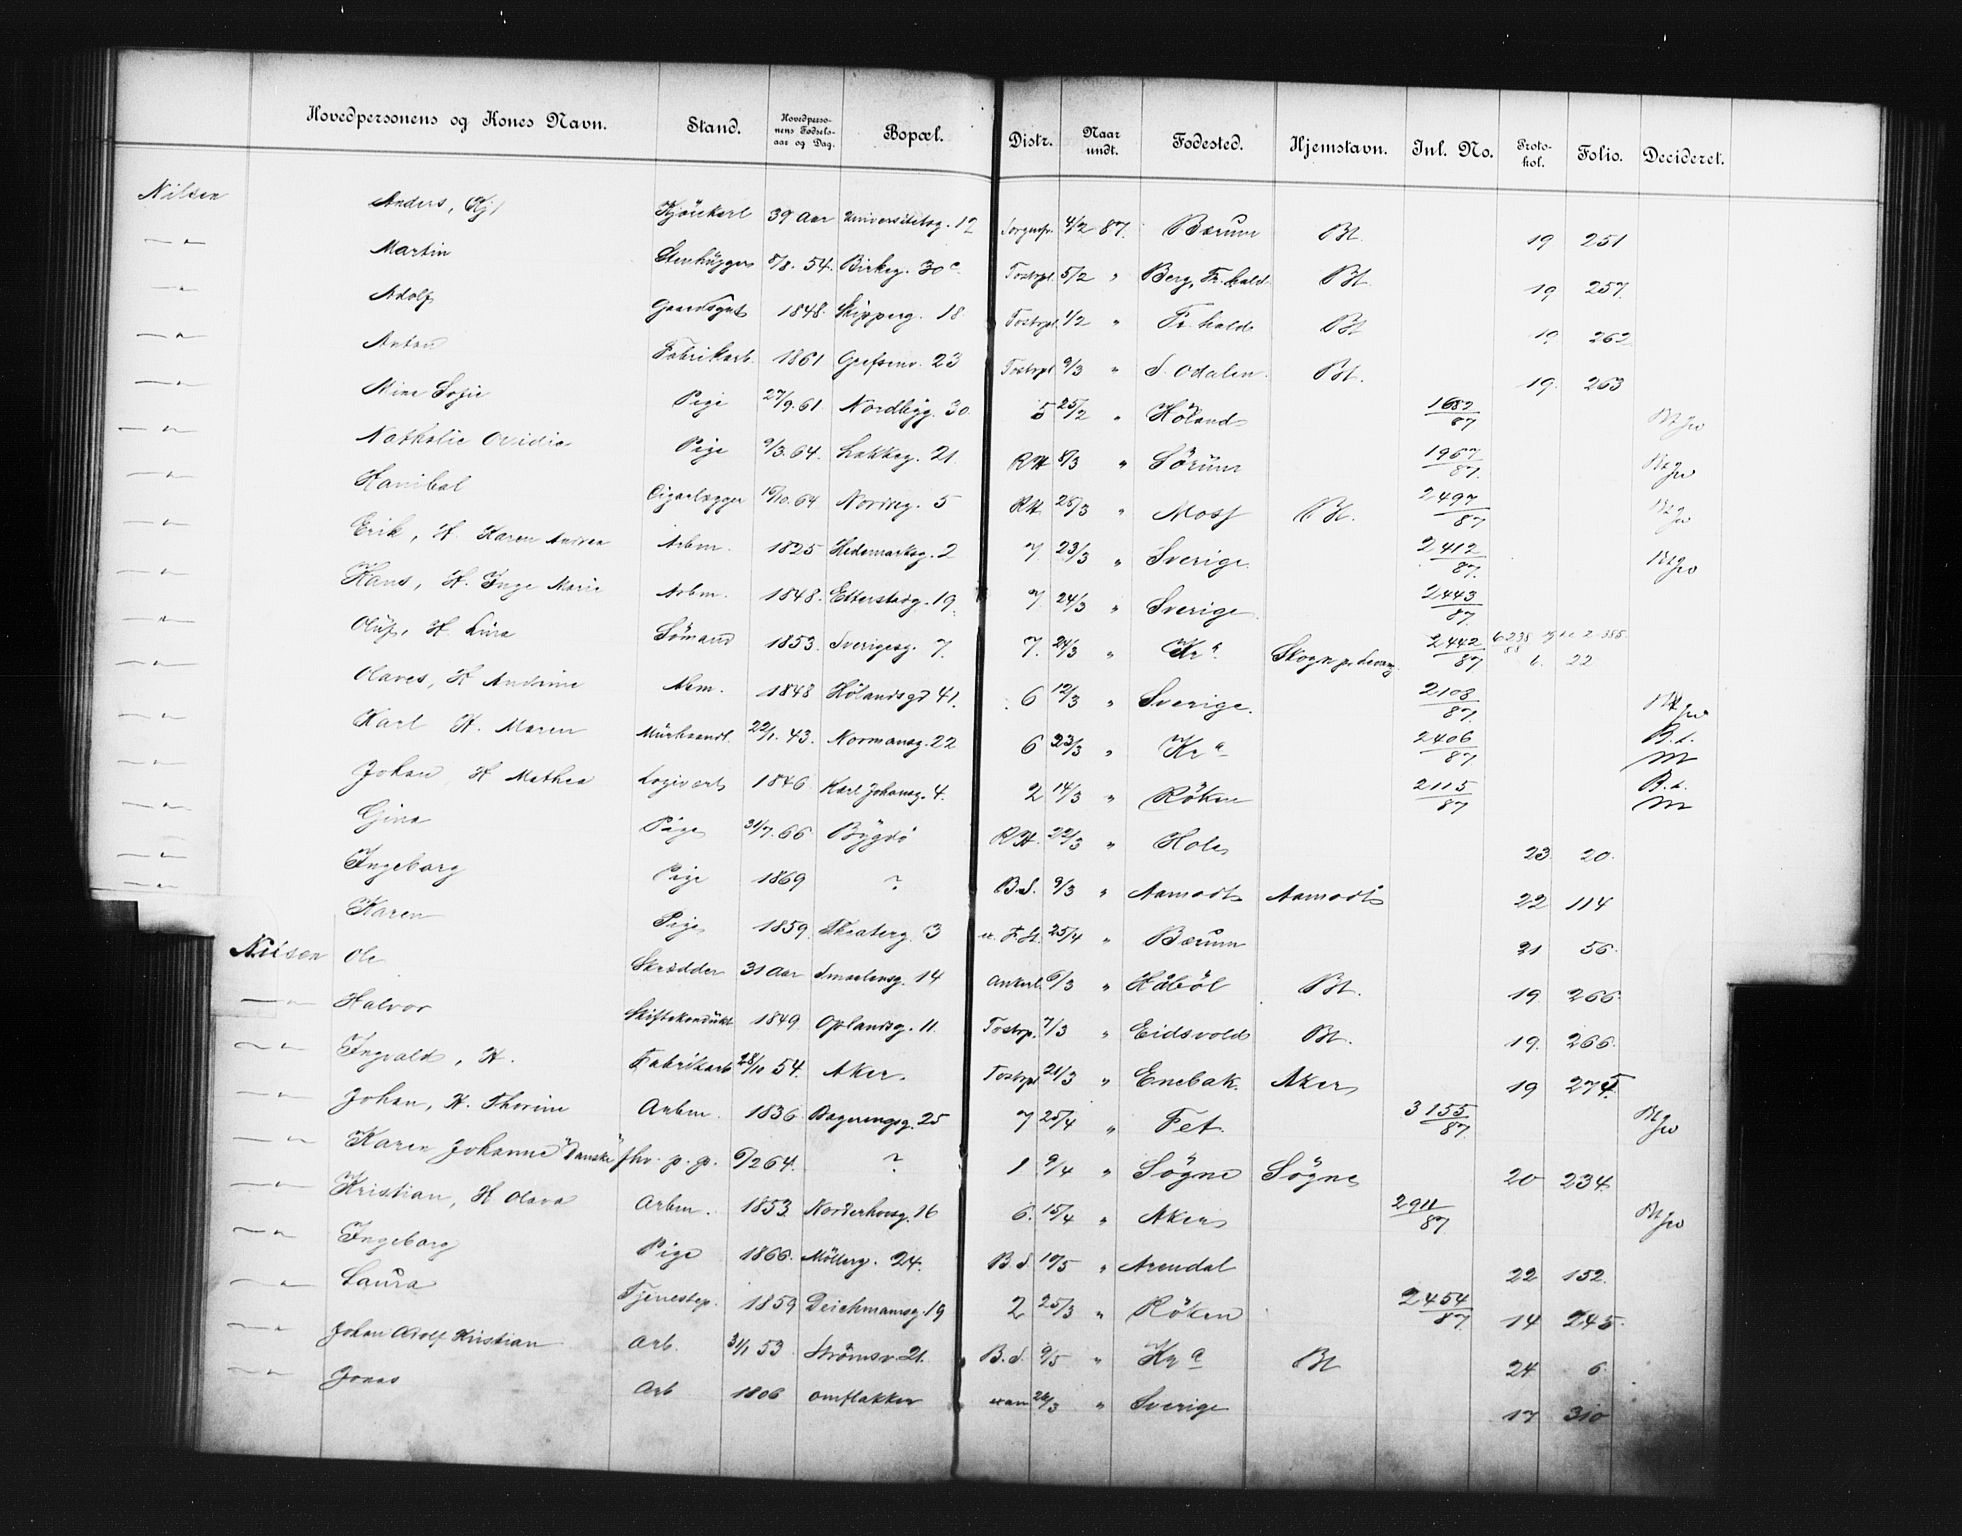 Hovedpersonens og Kones Navn. Stand. Hovedpersonens Fødselsaar og Dag. Bopæl. Distr. Naar undt. Fødested. Hjemstavn. Inl. No. Protokol. Folio. Decideret.
Nilsen Anders, Kj 39 Aar Universitetsg. 17 4/2 87. Bærum Bt. 19 251
— " — Martin Stenhugger 5/8. 54. Birkeg. 30 c. Tostrpl. 5/2 " Berg, Fr.hald Bt. 19 257.
— " — Adolf 1848. Skipperg. 18 Tostrpl. 1/2 " Fr. hald Bt 19 262
— " — Anton Fabrikarb. 1861 Grefsenv. 23 Tostrpl 9/3 " S. Odalen. Bt. 19. 263
— " — Mina Sofie Pige 27/9. 61 Nordbyg. 30. 5 25/2 " Höland 1682/87
— " — Nathalie Ovidia Pige 9/3. 64. Lakkeg. 21. RH 8/3 " Sörum 1967/87.
— " — Hanibal Cigarlægger 19/10. 64 Norbyg. 5 RH. 26/3 " Moss Bt. 2497/87
— " — Erik, H. Karen Andrea Arbm. 1825 Hedemarksg. 2 7 23/3 " Sverige. 2412/87.
— " — Hans, H. Inge Marie Arbm. 1848. Etterstadg. 19. 7. 24/3 " Sverige. 2443/87.
— " — Oluf, H. Lina Sömand 1853. Sverigesg. 7. 7. 24/3 " Kra. Skogn p. Levang. 2442/87. 6238/88 6. 22
— " — Olaves, H Andrine Abm. 1848 Hölandsgd 41. 6 12/3 " Sverige. 2108/87.
— " — Karl H. Maren Murhaandl. 22/1. 43. Normansg. 22 6 23/3 " Kra 2406/87. B.d. M
Johan, H Mathea Logivert 1846 Karl Johansg. 4. 2 14/3 " Röken 2115/87 B.d. M
— " — Gina Pige 31/7. 66 Bygdö RH. 22/3 " Hole 23 20.
— " — Ingeborg Pige 1869 ? B.d. 9/3 " Aamodt Aamodt 22 114
— " — Karen Pige 1859. Theaterg. 3 25/4 " Bærum 21 56.
Nilsen Ole Skrædder 31 Aar Smaalensg. 14 Ankerl. 6/3 " Håböl Bt. 19 266.
— " — Halvor Skiftekonduktr 1849. Oplandsg. 11. Tostrp. 7/3 " Eidsvold Bt. 19. 266.
— " — Ingvald, H. Fabrikarb 28/10 54. Aker. Tostrpl 21/3 " Enebak. Aker 19
— " — Johan, H. Thorine Arbm. 1836. Bagerengsg. 25 7 25/4 " Fet. 3155/87.
— " — Karen Johanne "Danske" fhv. p. p. 6/2 64. ? 1 9/4 " Sögne Sögne 20 234.
— " — Kristian, H Olava Arbm. 1853. Norderhovsg. 16 6. 15/4 " Aker 2911/87.
— " — Ingeborg Pige 1866. Möllerg. 24. B.d 10/5 " Arendal 22 152.
— " — Laura Tjenestep. 1859 Deichmansg. 19 2 25/3 " Röken 2454/87. 14 245.
— " — Johan Adolf Kristian Arb. 31/1 53 Strömsv. 21. B.d. 9/5 " Kra Bt 24 6.
— " — Jonas Arb 1806 omflakker 24/3 " Sverige 17 310